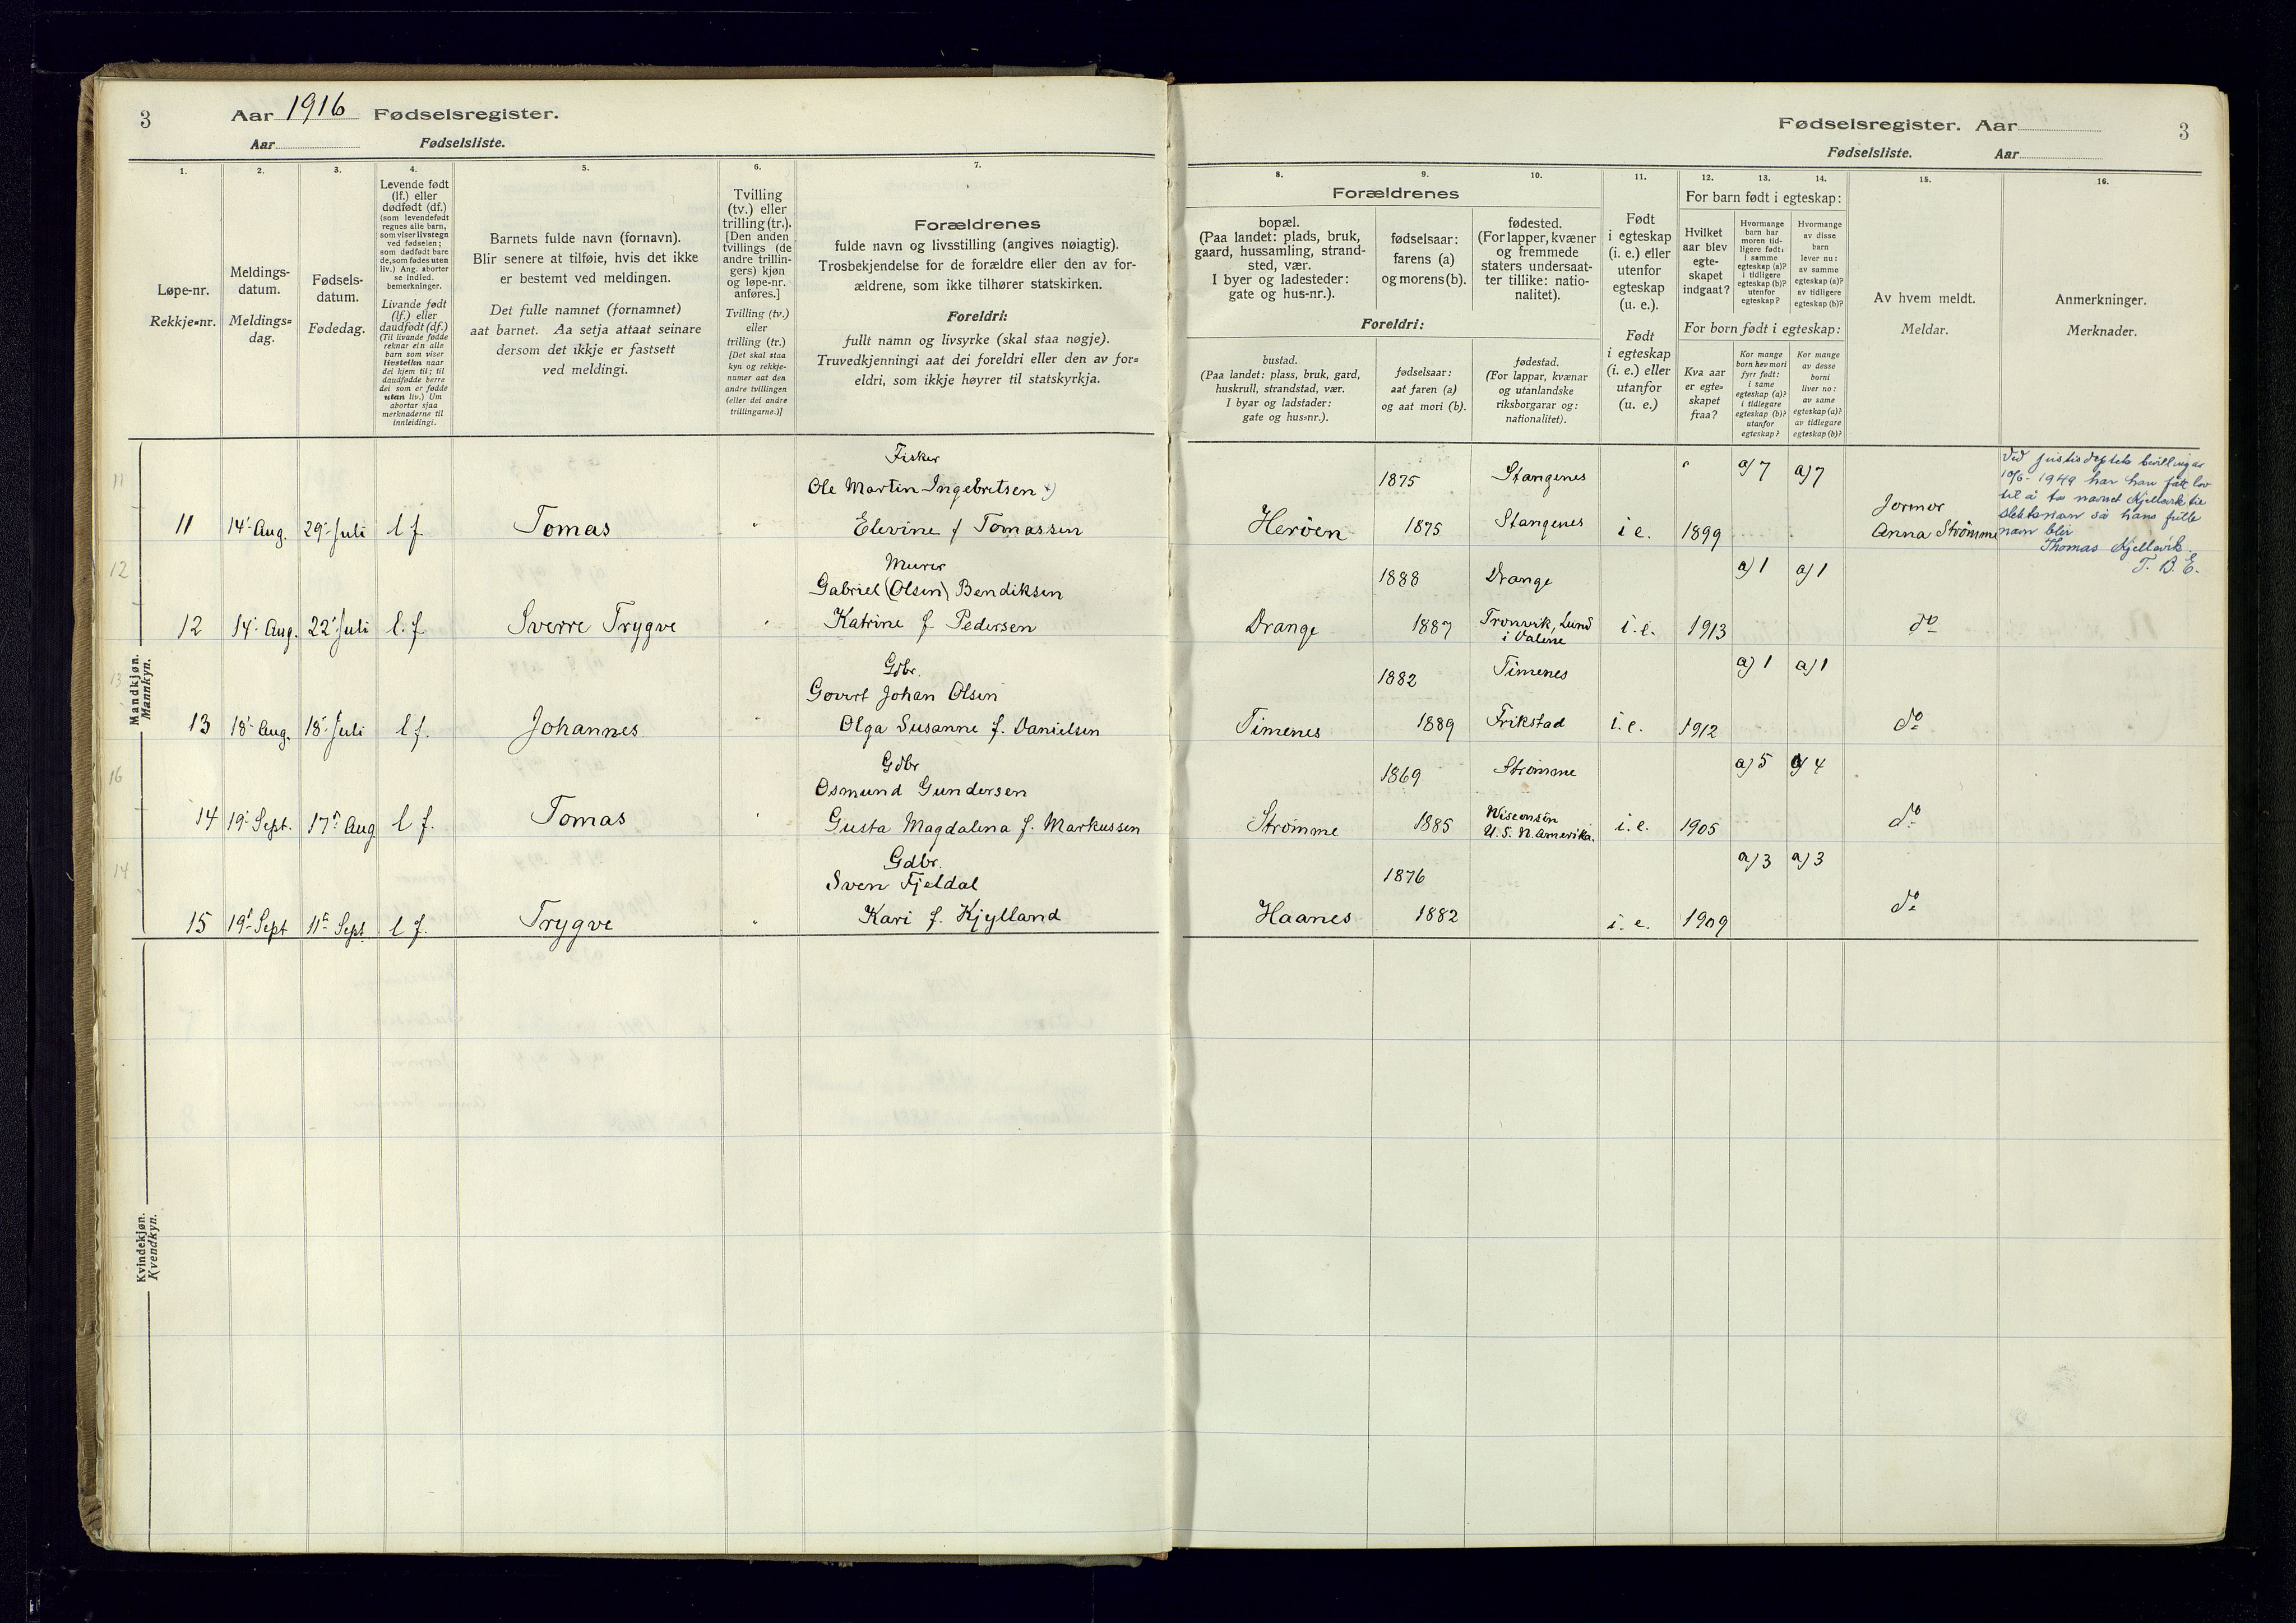 3
Aar 1916 Fødselsregister.
Aar Fødselsliste.
1.
2.
3.
4.
5.
6.
7.
Løpe-nr.
Rekkje-nr.
Meldings-
datum.
Meldings-
dag.
Fødsels-
datum.
Fødedag.
Levende født
(lf.) eller
dødfødt (df.)
(som levendefødt
regnes alle barn,
som viser livstegn
ved fødselen;
som dødfødt bare
de, som fødes uten
liv.) Ang. aborter
se indled.
bemerkninger.
Livande født
(lf.) eller
daudfødt (df.)
(Til livande fødde
reknar ein alle
barn som viser
livsteikn naar
dei kjem til; til
daudfødde berre
dei som er fødde
utan liv.) Um
abortar sjaa
merknaderne til
innleidingi.
Barnets fulde navn (fornavn).
Blir senere at tilføie, hvis det ikke
er bestemt ved meldingen.
Det fulle namnet (fornamnet)
aat barnet. Aa setja attaat seinare
dersom det ikkje er fastsett
ved meldingi.
Tvilling
(tv.) eller
trilling (tr.).
[Den anden
tvillings (de
andre trillin-
gers) kjøn
og løpe-nr.
anføres.]
Tvilling (tv.)
eller
trilling (tr.)
[Det skal staa
kyn og rekkje-
numer aat den
andre tvillingen
(eller dei andre
trillingarne.)]
Forældrenes
fulde navn og livsstilling (angives nøiagtig).
Trosbekjendelse for de forældre eller den av for-
ældrene, som ikke tilhører statskirken.
Foreldri:
fullt namn og livsyrke (skal staa nøgje).
Truvedkjenningi aat dei foreldri eller den av for-
eldri, som ikkje høyrer til statskyrkja.
Mandkjøn.
Mannkyn.
11
Fisker
Ole Martin Ingebretsen
11 14' Aug. 29' Juli l f. Tomas " Elevine f Tomassen
12
Murer
Gabriel (Olsen) Bendiksen
12 14' Aug. 22' Juli l. f. Sverre Trygve " Katrine f. Pedersen
13
Gdbr.
Govert Johan Olsen
13 18' Aug. 18' Juli l f. Johannes " Olga Susanne f. Danielsen
16
Gdbr
Osmund Gundersen
14 19' Sept. 17' Aug l f. Tomas " Gusta Magdalena f. Markussen
14
Gdbr.
Sven Fjeldal
15 19' Sept 11' Sept. l f. Trygve " Kari f. Kjylland
Kvindekjøn.
Kvendkyn.
Fødselsregister. Aar
3
Fødselsliste. Aar
8.
9.
10.
11.
12.
13.
14.
15.
16.
Forældrenes
bopæl.
(Paa landet: plads, bruk,
gaard, hussamling, strand-
sted, vær.
I byer og ladesteder:
gate og hus-nr.).
fødselsaar:
farens (a)
og morens (b).
fødested.
(For lapper, kvæner
og fremmede
staters undersaat-
ter tillike: natio-
nalitet).
Foreldri:
bustad.
(Paa landet: plass, bruk, gard,
huskrull, strandstad, vær.
I byar og ladstader:
gate og hus-nr.).
fødselsaar:
aat faren (a)
og aat mori (b).
fødestad.
(For lappar, kvænar
og utanlandske
riksborgarar og:
nationalitet).
Født
i egteskap
(i. e.) eller
utenfor
egteskap
(u. e.).
Født
i egteskap
(i. e.) eller
utanfor
(u. e.)
For barn født i egteskap:
Hvilket
aar blev
egte-
skapet
indgaat?
Hvormange
barn har
moren tid-
ligere født:
i samme
egteskap (a)?
i tidligere
egteskap (b)?
utenfor
egteskap?
Hvormange
av disse
barn
lever nu:
av samme
egteskap (a)?
av tidligere
egteskap (b)?
For born født i egteskap:
Kva aar
er egte-
skapet
fraa?
Kor mange
born hev mori
fyrr født:
i same
egteskap (a)?
i tidlegare
egteskap (b)?
utanfor
egteskap?
Kor mange
av desse
borni
liver no:
av same
egteskap (a)?
av tidlegare
egteskap (b)?
Av hvem meldt.
Meldar.
Anmerkninger.
Merknader.
1875 Stangenes a) 7 a) 7
Herøen 1875 Stangenes i e. 1899
Jormor
Anna Strømme
Ved Justisdeptets bevilling av
10/6- 1949 har han fått lov
til å ta navnet Kjellevik til
slektsnavn så hans fulle
navn blir
Thomas Kjellevik.
T. B. E.
1888 Drange a) 1 a) 1
Drange 1887 Tronvik, Lund
i Valene i. e. 1913 do
1882 Timenes a) 1 a) 1
Timenes 1889 Frikstad i. e. 1912 do
1869 Strømme a) 5 a) 4
Strømme 1885 Wisconsin
U. S. N. Amerika. i. e. 1905 do
1876 a) 3 a) 3
Haanes 1882 i. e. 1909 do